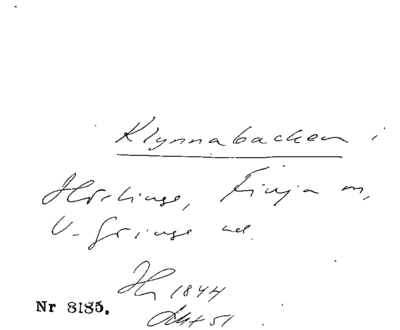 Klynnabacken i
Hörlinge, Finja sn,
V. Göinge hd.
1844
Nr 8185.
51